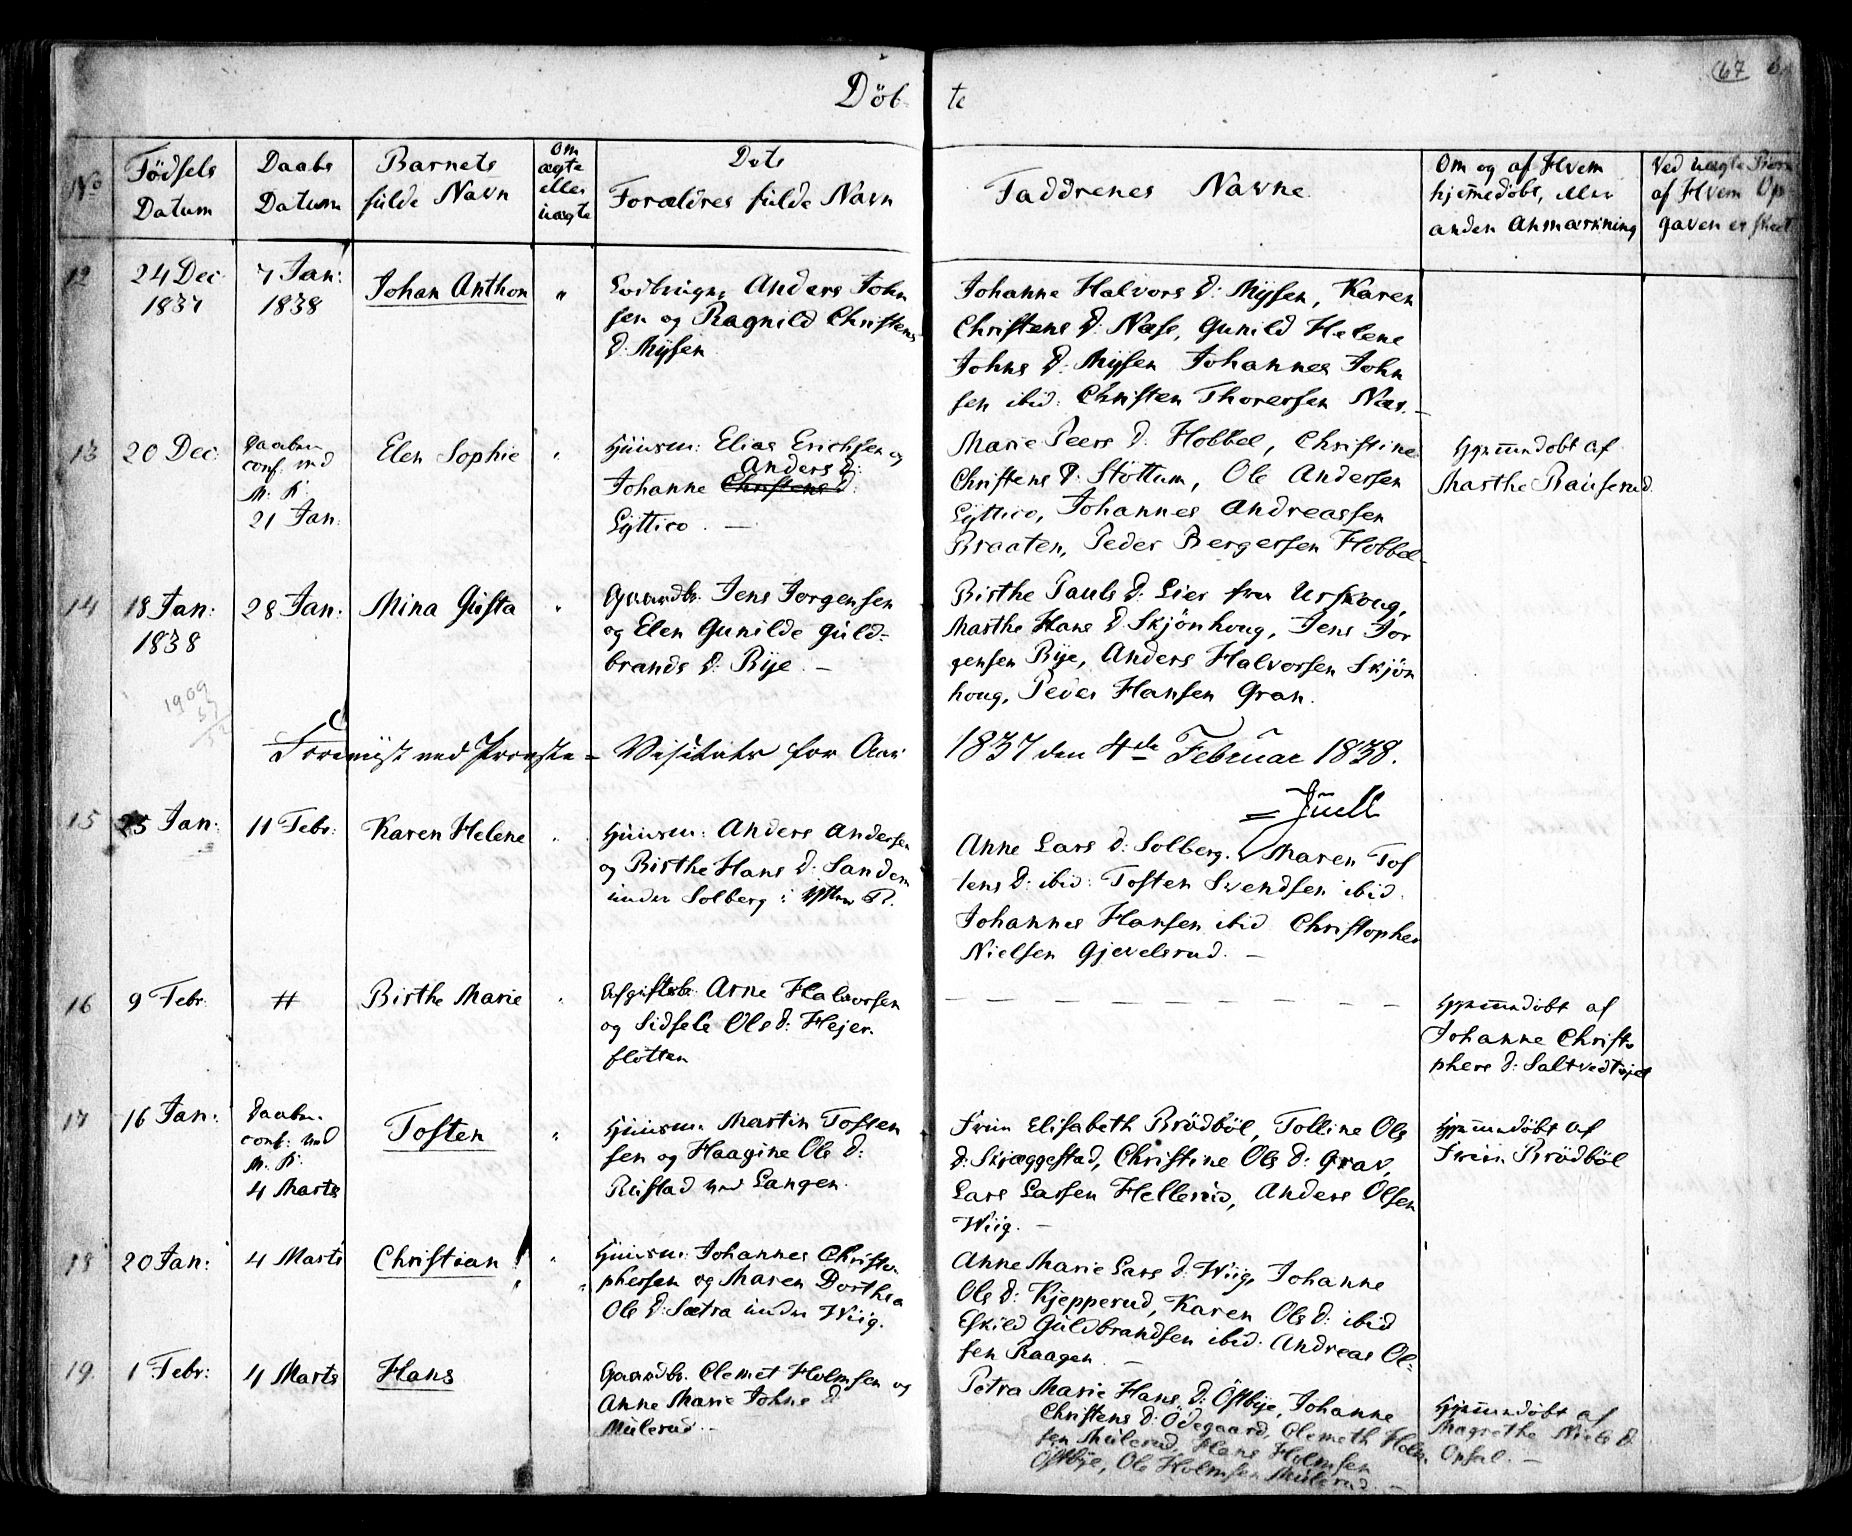 67
Döbte
No
Födsels Datum
Daabs Datum
Barnets fulde Navn
Om ægte eller uægte
Dets Forældres fulde Navn
Faddrenes Navne
Om og af Hvem hjemedöbt, eller anden Anmærkning
Ved uægte Börn af Hvem Opgaven er skeet
12
24 Dec: 1837
7 Jan: 1838
Johan Anthon
"
Anders John
sen og Ragnild Christens
D: Mysen
Johanne Halvors D: Mysen, Karen
Christens D: Næss, Gunild Helene
Johns D: Mysen Johannes John
sen ibid: Christen Thoresen Næs. –
13
20 Dec:
Daaben
conf: ved
M. K:
21 Jan:
Elen Sophie
"
Huusm: Elias Erichsen og
Anders D:
Johanne Christens D:
Lyttico. –
Marie Peers D: Hobbel, Christine
Christens D: Stöttum, Ole Andersen
Lyttico, Johannes Andreassen
Braaten, Peder Bergersen Hobbel
Hjemmedöbt af
Marthe Rauserud.
14
18 Jan: 1838
28 Jan:
Mina Gusta
"
Gaardbr. Jens Jorgensen
og Elen Gunilde Guld=
brands D: Rye. –
Birthe Pauls D: Lier fra Urskoug,
Marthe Hans D: Skjönhoug, Jens Jor
gensen Rye, Anders Halvorsen Skjön
houg, Peder Hansen Gran.
1909
Foreviist ved Provste=Visitats for Aar 1837 den 4de Februar 1838.
Juell
15
25 Jan:
11 Febr:
Karen Helene
"
Huusm: Anders Andersen
og Birthe Hans D: Sanden
under Solberg i
Anne Lars D: Solberg. Maren Tos
tens D: ibid: Tosten Svendsen ibid.
Johannes Hansen ibid Christopher
Nielsen Gjevelsrud. –
16
9 Febr:
#
Birthe Marie
"
Arne Halvorsen
og Sidsele Ols D: Hejer
flötten
– – – – – – – – –
Hjemmedöbt af
Johanne Christo
phers D: Saltvedt
17
16 Jan:
Daaben
conf: ved
M. K:
4 Marts
Tosten
"
Huusm. Martin Tosten
sen og Haagine Ols D:
Rustad ved Langen.
Fruu Elisabeth Brödböl, Tolline Ols
D: Skræggestad, Christine Ols D: Grav,
Lars Larsen Hellerud, Anders Olsen
Wiig. –
Hjemmedöbt af
Fruu Brödböl
18
20 Jan:
4 Marts
Christian
"
Huusm: Johannes Christo
phersen og Maren Dorthea
Ols D: Sætra under Wiig.
Anne Marie Lars D: Wiig, Johanne
Ols D: Kjepperud, Karen Ols D: ibid
Eskild Guldbrandsen ibid. Andreas Ol=
sen Raagen. –
19.
1 Febr:
4 Marts
Hans
Gaardbr. Clemet Holmsen og
Anne Marie Johns D
Mulerud. –
Petra Marie Hans D: Östbye, Johanne
Christens D: Ödegaard, Clemeth Holm
sen Mulerud, Hans Holmsen
Östbye, Ole Holmsen Mulerud. –
Hjemmedöbt af
Magrethe Niels D
Opsal. –